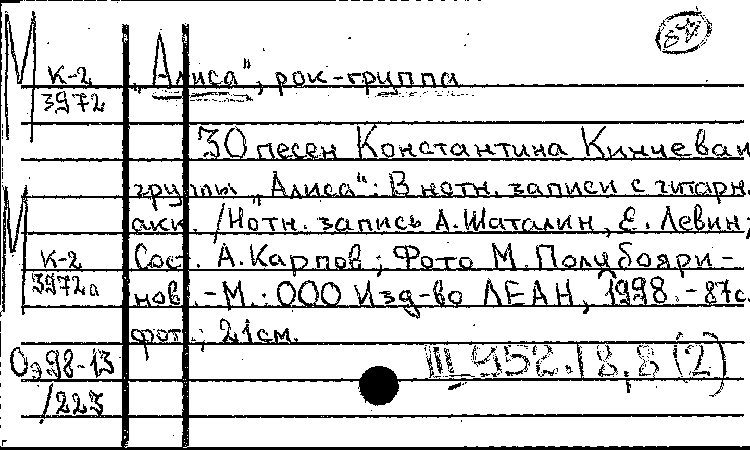 М К-2
3972
„Алиса“, рок-группа
30 песен Константина Кинчева и
группы „Алиса“: В нотн. записи с гитарн.
акк. /Нотн. запись А.Шаталин, Е. Левин;
М К-2
3972а
Сост. А.Карпов; Фото М.Полубояри-
нов. -М.: ООО Изд-во ЛЕАН, 1998. -87с.
фот.; 21см.
Оэ98-13
/223
III 952.18,8(2)